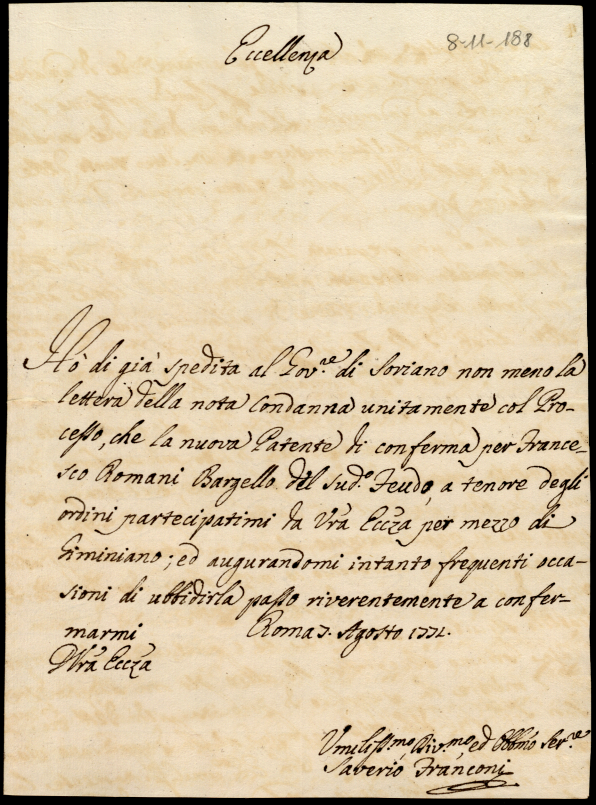 Eccellenza
8-11-188
Hò di già spedita al Gov.re di Soriano non meno la
lettera della nota Condanna unitamente col Pro-
cesso, che la nuova Patente di conferma per France-
sco Romani Bargello del sud.o Feudo, a tenore degli
ordini partecipatimi da Vra Eccza per mezzo di
Giminiano; ed augurandomi intanto frequenti occa-
sioni di ubbidirla passo riverentemente a confer-
marmi Roma 7. Agosto 1771.
D Vra Eccza
Umilissmo Div.mo ed Obbmo Ser.re
Saverio Franconi